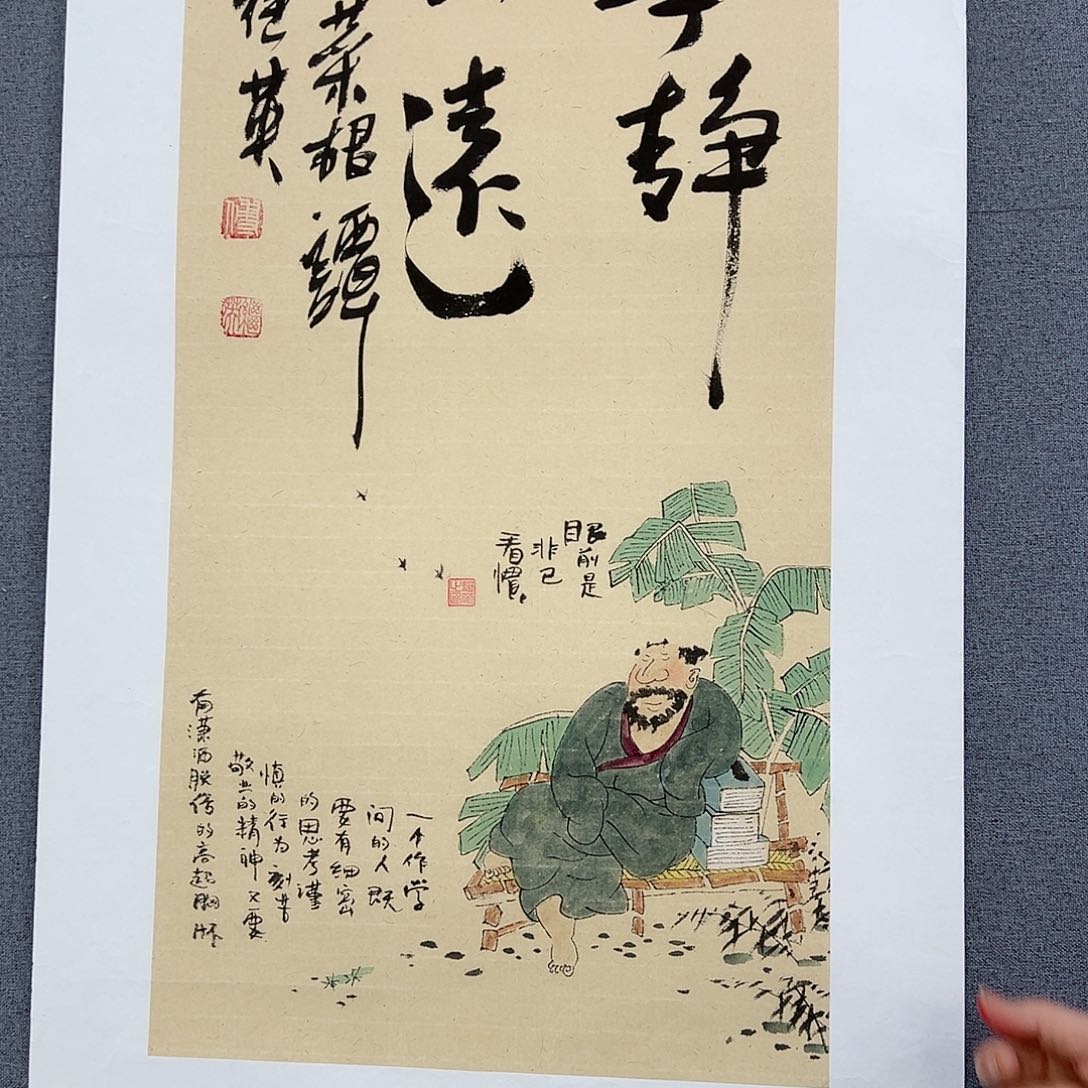 静
遠
菜根譚
英
眼前是
非已
看慣
一个作学
问的人既
要有细密
的思考谨
慎的行为刻苦
敬业的精神又要
有潇洒脱俗的高超胸怀